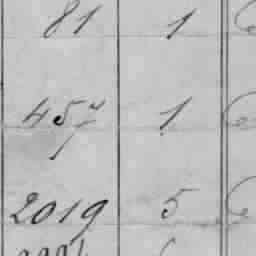 81 1
457 1
2019 5